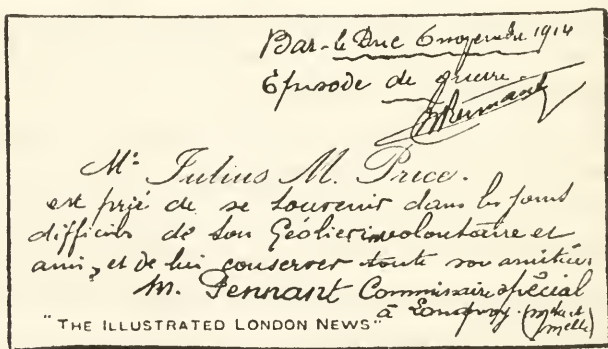 Bar-le Duc 6 novembre 1914
Episode de guerre.
Mr. Julius M. Price.
est prié de se souvenir dans les jours
difficiles de son Géolier involontaire et
ami, et de lui conserver toute son amitié.
M. Pennant Commissaire spécial
à Longwy (Mthe et
Melle)
"THE ILLUSTRATED LONDON NEWS"